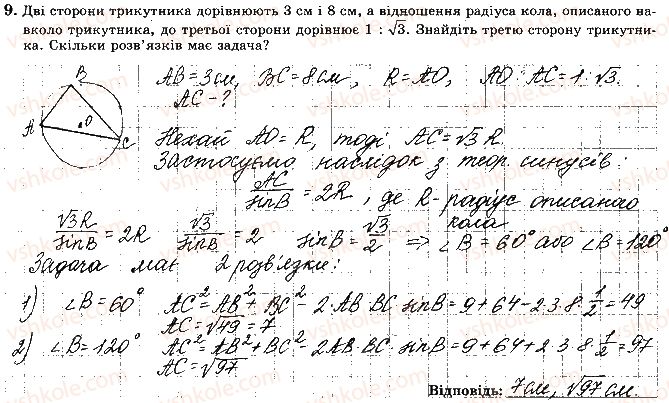 9. Дві сторони трикутника дорівнюють 3 см і 8 см, а відношення радіуса кола, описаного на-
вколо трикутника, до третьої сторони дорівнює 1 : √3. Знайдіть третю сторону трикутни-
ка. Скільки розв'язків має задача?
B
A
O
C
AB = 3см, BC = 8см, R = AO, AO : AC = 1 : √3.
AC - ?
Нехай AO = R, тоді AC = √3 R.
Застосуємо наслідок з теор синусів:
AC/sinB = 2R, де R - радіус описаного
кола
√3R/sinB = 2R √3/sinB = 2 sinB = √3/2 ⇒ ∠B = 60° або ∠B = 120°
Задача має 2 розв'язки:
1) ∠B = 60° AC² = AB² + BC² - 2·AB·BC·sinB = 9 + 64 - 2·3·8·1/2 = 49
AC = √49 = 7
2) ∠B = 120° AC² = AB² + BC² - 2AB·BC·sinB = 9 + 64 + 2·3·8·1/2 = 97
AC = √97
Відповідь: 7см, √97 см.
vshkole.com